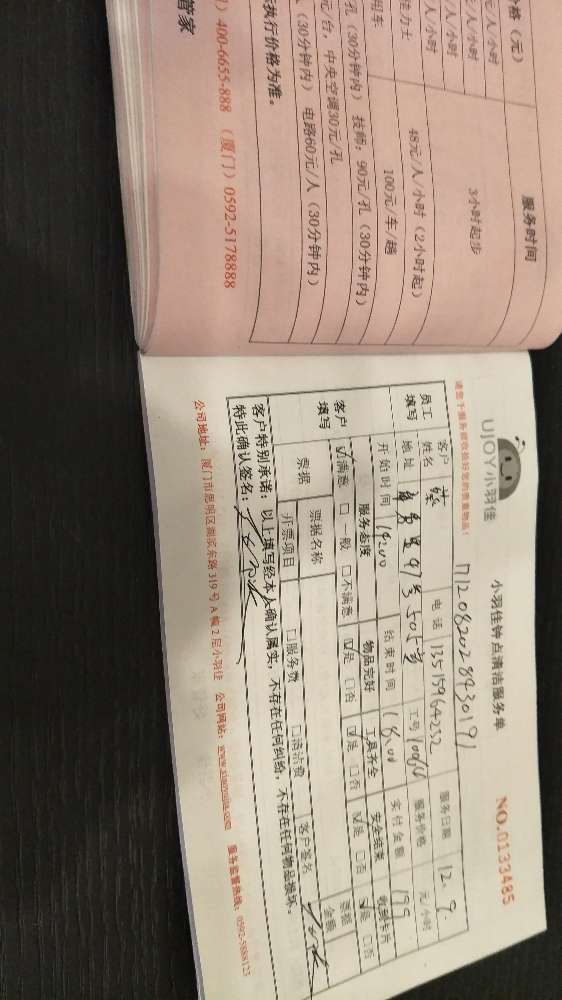 格（元）
服务时间
元/人/小时
/人/小时
/人/小时
3小时起步
48元/人/小时（2小时起）
100元/车/趟
孔（30分钟内） 技师：90元/孔（30分钟内）
元/台，中央空调30元/孔
（30分钟内） 电路60元/人（30分钟内）
执行价格为准。
400-6655-888 （厦门）0592-5178888
管家
UJOY小羽佳
小羽佳钟点清洁服务单
NO.0133485
请您于服务前收捡好您的贵重物品！
员工填写
客户姓名
电话 13515964232
服务日期 12.9.
地址
97号505室
工号
服务价格
元/小时
开始时间 14:00
结束时间 18:00
实付金额 199
客户填写
服务态度
物品完好
工具齐全
安全结束
收到卡片
满意 一般 不满意
是 否
是 否
是 否
是 否
票据
票据名称
客户签名
票据金额
开票项目
服务费
清洁费
客户特别承诺：以上填写经本人确认属实，不存在任何纠纷，不存在任何物品损坏。
特此确认签名：
公司地址：厦门市思明区湖滨东路319号A幢2层小羽佳 公司网站：www.xiaoyujia.com 服务监督热线：0592-5888123